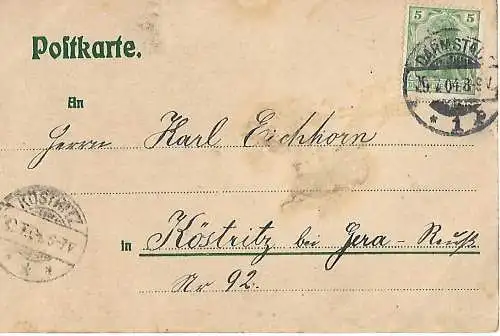 Postkarte.
5 5
DARMSTADT
04
* 1
An
Herrn Karl Eichhorn
KÖSTRITZ
in Köstritz bei Gera - Reuß
Nr 92.